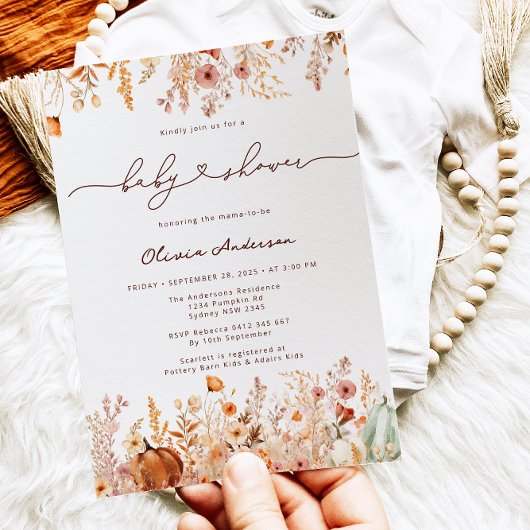 Kindly join us for a
baby shower
honoring the mama-to-be
Olivia Anderson
FRIDAY • SEPTEMBER 28, 2025 • AT 3:00 PM
The Andersons Residence
1234 Pumpkin Rd
Sydney NSW 2345
RSVP Rebecca 0412 345 667
By 10th September
Scarlett is registered at
Pottery Barn Kids & Adairs Kids